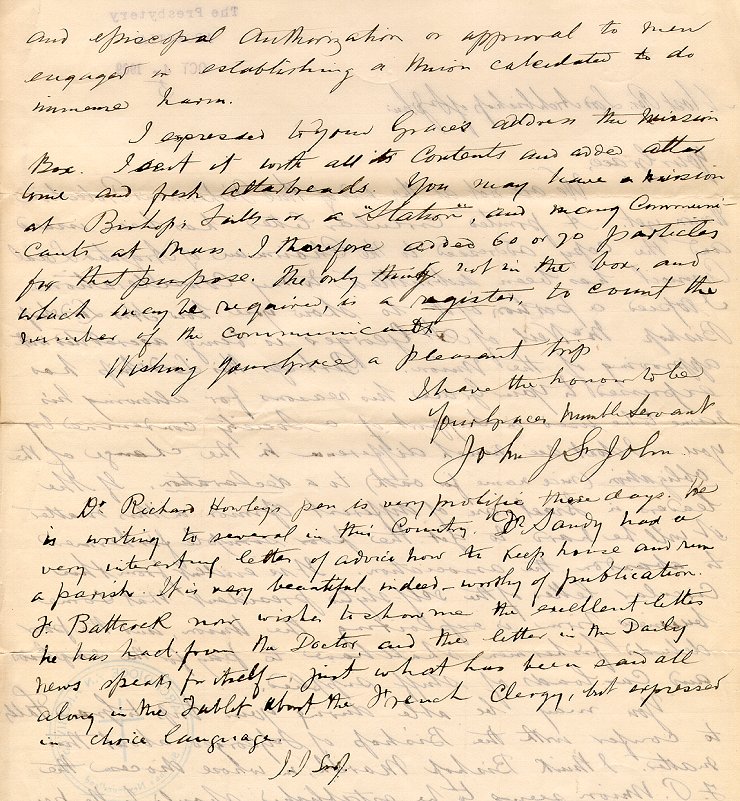 and episcopal authorization or approval to men
engaged in establishing a Union calculated to do
immense harm.
I expressed to your Grace's address the Mission
Box. I sent it with all its Contents and added altar
wine and fresh altarbreads. You may have a mission
at Bishop's Falls – or a "Station", and many Communi-
cants at Mass. I therefore added 60 or 70 particles
for that purpose. The only thing not in the box, and
which may be required, is a register, to count the
number of the communicants.
Wishing your Grace a pleasant trip
I have the honour to be
Your Graces humble Servant
John J St John.
Dr Richard Howleys pen is very prolific these days. He
is writing to several in this Country. Dr Sandy had a
very interesting letter of advice how to keep house and run
a parish. It is very beautiful indeed – worthy of publication.
F. Battcock now wishes to show me the excellent letter
he has had from the Doctor and the letter in the Daily
News speaks for itself – just what has been said all
along in the Tablet about the French Clergy, but expressed
in choice language.